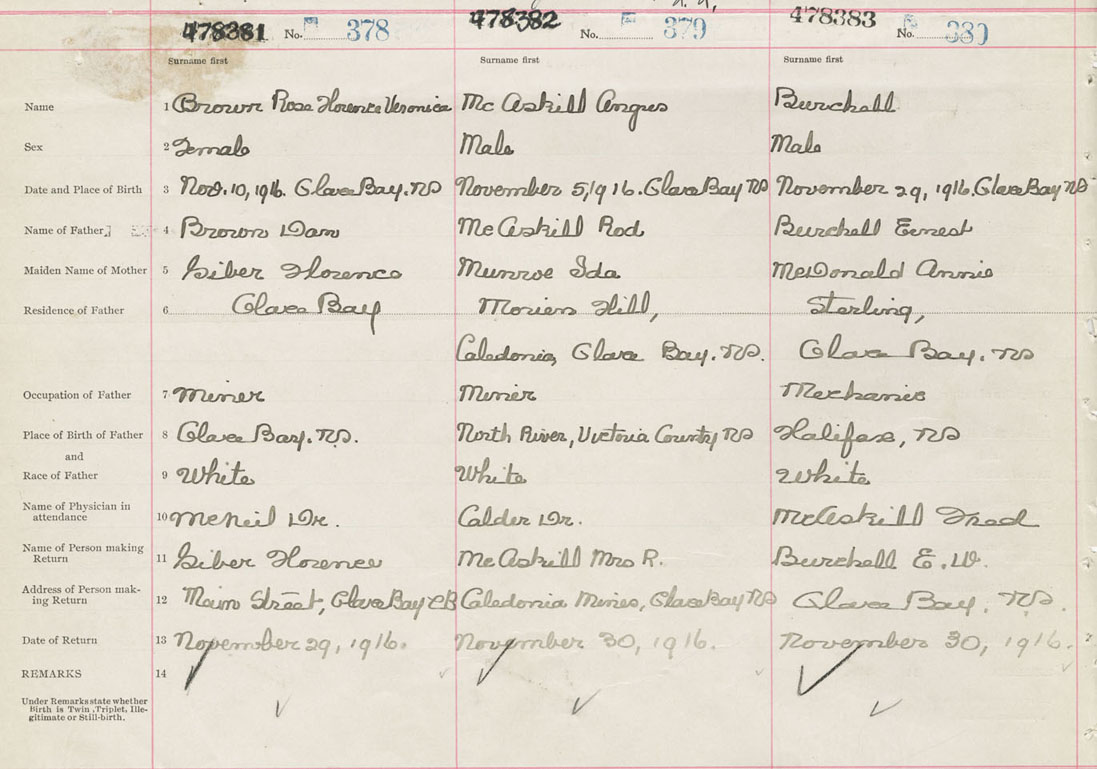 478381 No. 378 478382 No. 379 478383 No. 380
Surname first Surname first Surname first
Name 1 Brown Rose Florence Veronica Mc Askill Angus Burchell
Sex 2 Female Male Male
Date and Place of Birth 3 Nov. 10, 1916. Glace Bay. NS November 5, 1916. Glace Bay NS November 29, 1916. Glace Bay NS
Name of Father 4 Brown Dan McAskill Rod Burchell Ernest
Maiden Name of Mother 5 Giber Florence Munroe Ida McDonald Annie
Residence of Father 6 Glace Bay Morien Hill, Sterling,
Caledonia, Glace Bay. NS. Glace Bay. NS
Occupation of Father 7 Miner Miner Mechanic
Place of Birth of Father 8 Glace Bay. NS. North River, Victoria County NS Halifax, NS
and
Race of Father 9 White White White
Name of Physician in
attendance 10 McNeil Dr. Calder Dr. McAskill Fred
Name of Person making
Return 11 Giber Florence McAskill Mrs R. Burchell E. W.
Address of Person mak-
ing Return 12 Main Street, Glace Bay CB Caledonia Mines, Glace Bay NS Glace Bay. NS.
Date of Return 13 November 29, 1916. November 30, 1916. November 30, 1916.
REMARKS 14
Under Remarks state whether
Birth is Twin, Triplet, Ille-
gitimate or Still-birth.